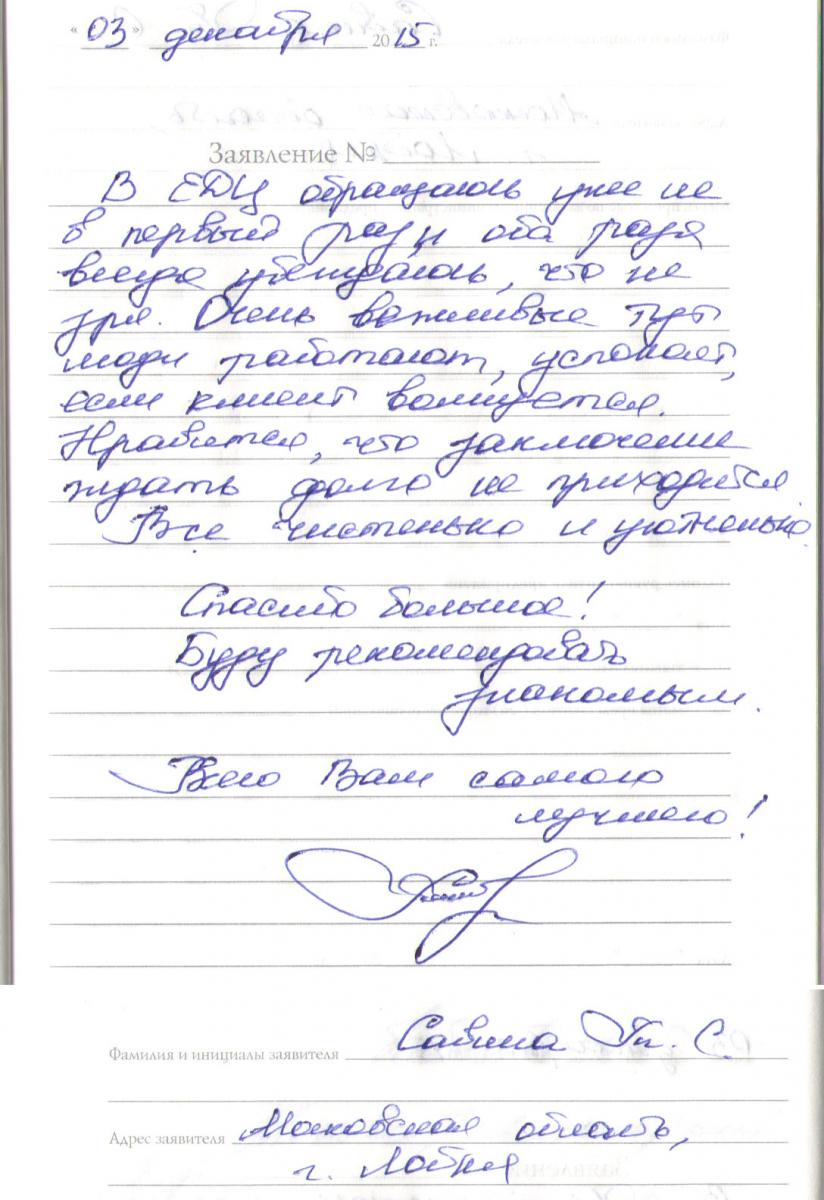 «03» декабря 2015 г.
Заявление №
В ЕДЦ обращаюсь уже не
в первый раз, и оба раза
всегда убеждаюсь, что не
зря. Очень вежливые тут
люди работают, успокоят,
если клиент волнуется.
Нравится, что заключение
ждать долго не приходится.
Все чистенько и уютненько.
Спасибо большое!
Буду рекомендовать
знакомым.
Всего Вам самого
лучшего!
Фамилия и инициалы заявителя Савина С.
Адрес заявителя Московская область,
г. Лобня